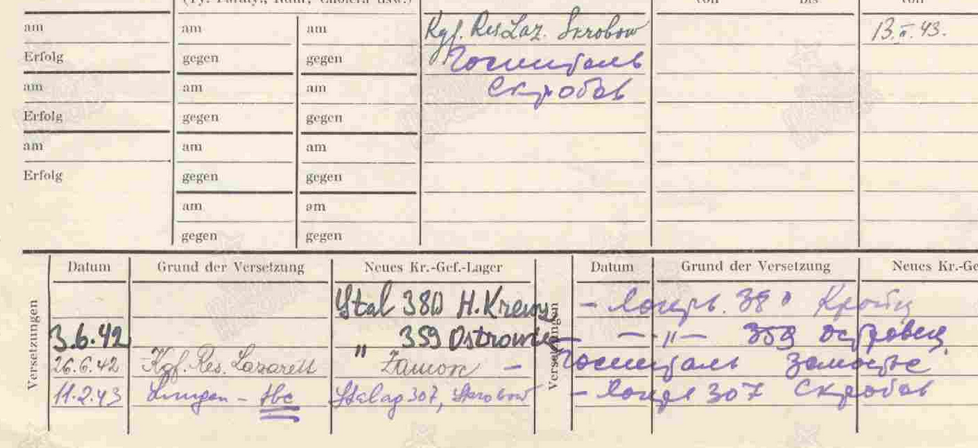 (Ty. Paraty., Ruhr, Cholera usw.) von bis von
am am am Kgf. Res Laz. Skrobow 13.II.43.
Erfolg gegen gegen Госпиталь
am am am Скробов
Erfolg gegen gegen
am am am
Erfolg gegen gegen
am am
gegen gegen
Versetzungen Datum Grund der Versetzung Neues Kr.-Gef.-Lager Versetzungen Datum Grund der Versetzung Neues Kr.-Ge
Stal 380 H. Kreuz – Лагерь 380 Кройц
3.6.42 " 359 Ostrowiec — " — 359 Островец
26.6.42 Kgf. Res. Lazarett Zamosc – Госпиталь Замостье
11.2.43 Lungen – tbc Stalag 307, Skrobow – Лагерь 307 Скробов